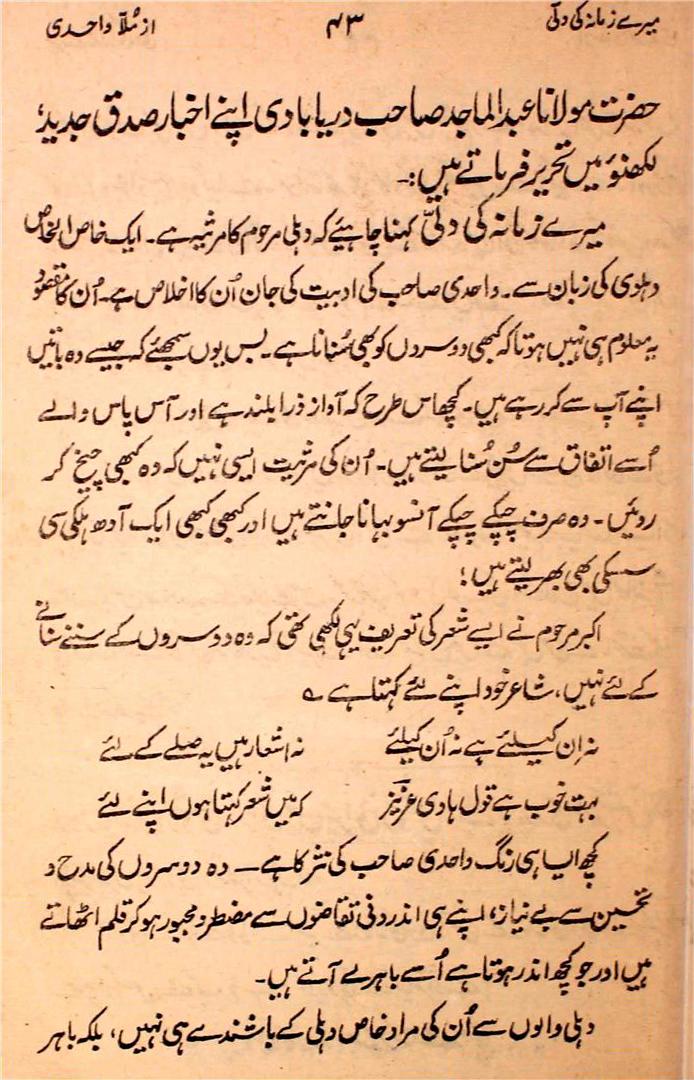 میرے زمانہ کی دلّی ۴۳ از مُلّا واحدی
حضرت مولانا عبدالماجد صاحب دریابادی اپنے اخبار صدق جدید،
لکھنؤ میں تحریر فرماتے ہیں:۔
میرے زمانہ کی دلّی کہنا چاہیئے کہ دہلی مرحوم کا مرثیہ ہے۔ ایک خاص الخاص
دہلوی کی زبان سے۔ واحدی صاحب کی ادبیت کی جان اُن کا اخلاص ہے۔ اُن کا مقصود
یہ معلوم ہی نہیں ہوتا کہ کبھی دوسروں کو بھی سُنانا ہے۔ بس یوں سمجھئے کہ جیسے وہ باتیں
اپنے آپ سے کر رہے ہیں۔ کچھ اس طرح کہ آواز ذرا بلند ہے اور آس پاس والے
اُسے اتفاق سے سُن سُنا لیتے ہیں۔ اُن کی مرثیت ایسی نہیں کہ وہ کبھی چیخ کر
روئیں۔ وہ صرف چپکے چپکے آنسو بہانا جانتے ہیں اور کبھی کبھی ایک آدھ ہلکی سی
سسکی بھی بھر لیتے ہیں!
اکبر مرحوم نے ایسے شعر کی تعریف یہی لکھی تھی کہ وہ دوسروں کے سننے سنانے
کے لئے نہیں، شاعر خود اپنے لئے کہتا ہے ؎
نہ اِن کیلئے ہے نہ اُن کیلئے نہ اشعار ہیں یہ صلے کے لئے
بہت خوب ہے قول ہادی عزیز کہ میں شعر کہتا ہوں اپنے لئے
کچھ ایسا ہی رنگ واحدی صاحب کی نثر کا ہے۔ وہ دوسروں کی مدح و
تحسین سے بے نیاز، اپنے ہی اندرونی تقاضوں سے مضطر و مجبور ہو کر قلم اٹھاتے
ہیں اور جو کچھ اندر ہوتا ہے اُسے باہر لے آتے ہیں۔
دہلی والوں سے اُن کی مراد خاص دہلی کے باشندے ہی نہیں، بلکہ باہر